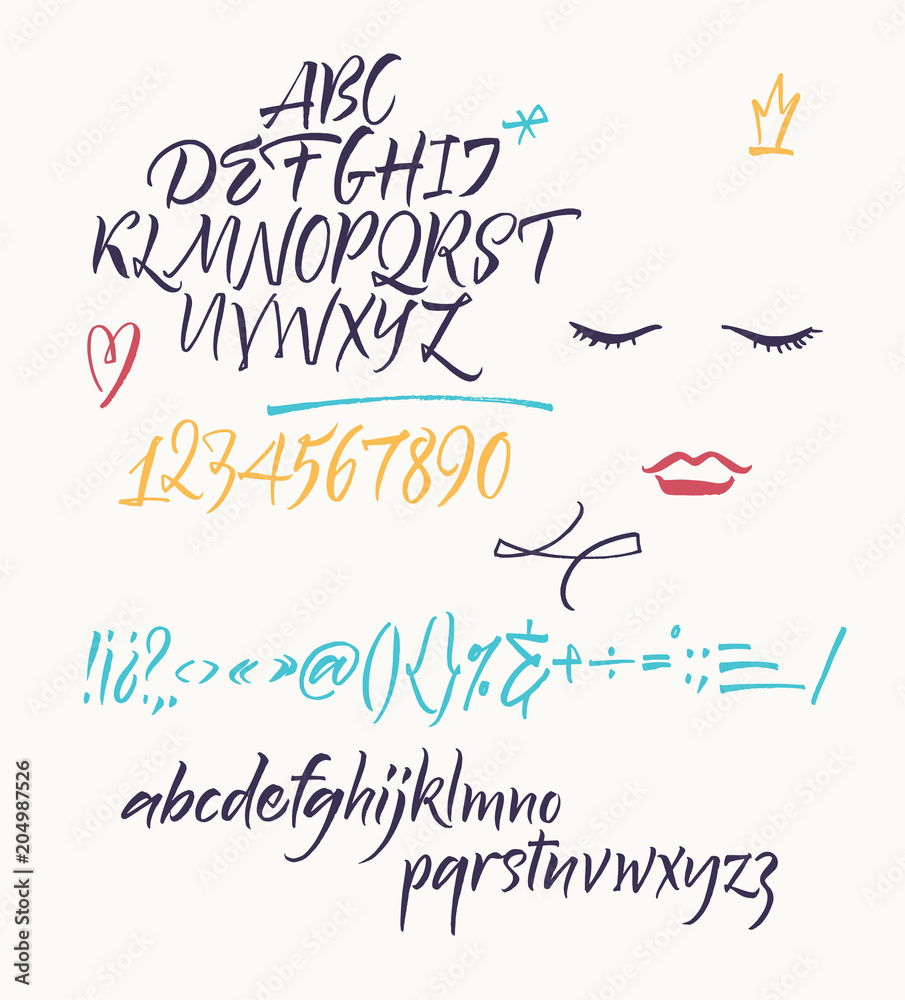 ABC
DEFGHIJ
*
KLMNOPQRST
UVWXYZ
1234567890
!¡¿?.,‹›«»@(){}%&+÷=°:;—_/
abcdefghijklmno
pqrstuvwxyzz
Adobe Stock | #204987526